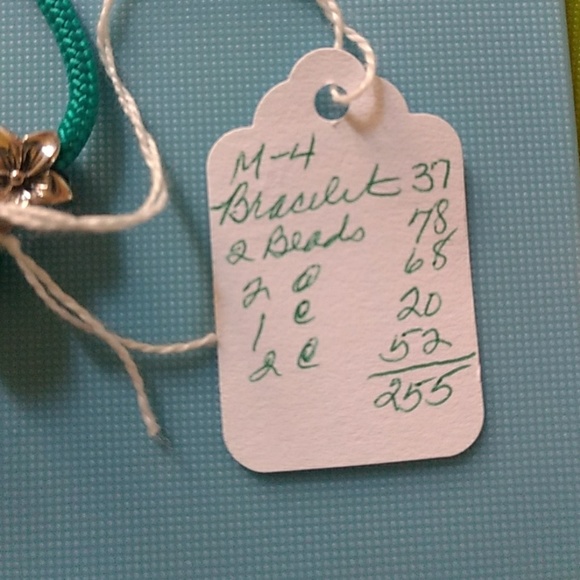 M-4
Bracelet 37
2 Beads 78
2 @ 68
1 @ 20
2 @ 52
255